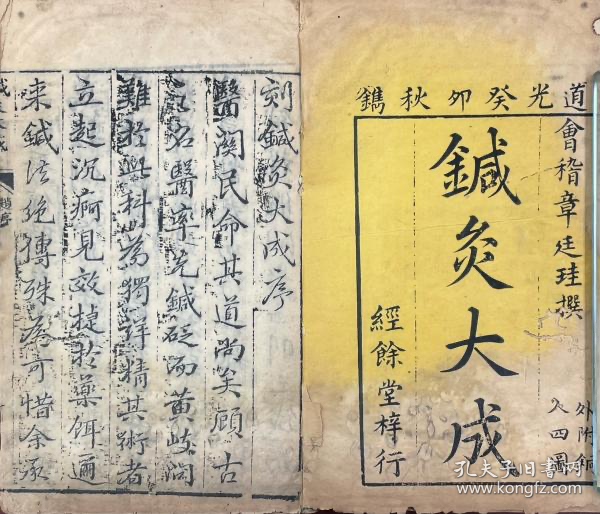 道光癸卯秋鐫
會稽章廷珪撰
外附銅
人四圖
鍼灸大成
經餘堂梓行
刻鍼灸大成序
醫關民命其道尚矣顧古
名醫率先鍼砭而黃岐
難於此科為獨詳精其術者
立起沉痾見效捷於藥餌邇
來鍼法絕傳殊為可惜余承
趙序
孔夫子旧书网
www.kongfz.com